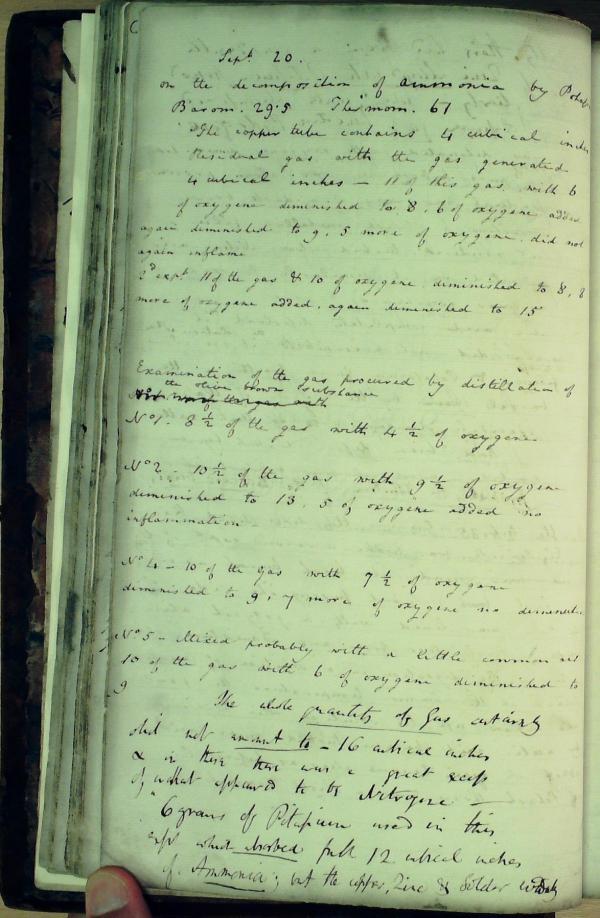 Sept. 20.
on the decomposition of ammonia by Potass
Barom. 29.5 Thermom. 67
The copper tube contains 4 cubical inches
Residual gas with the gas generated
4 cubical inches — 11 of this gas with 6
of oxygene diminished to 8, 6 of oxygene added
again diminished to 9. 5 more of oxygene. did not
again inflame
2d expt 11 of the gas & 10 of oxygene diminished to 8, 8
more of oxygene added, again diminished to 15
Examination of the gas procured by distillation of
the olive brown substance
No 1. 8 1/2 of the gas with 4 1/2 of oxygene
No 2 - 10 1/2 of the gas with 9 1/2 of oxygene
diminished to 13. 5 of oxygene added no
inflammation
No 4 - 10 of the gas with 7 1/2 of oxygene
diminished to 9, 7 more of oxygene no diminut.
No 5 - Mixed probably with a little common air
10 of the gas with 6 of oxygene diminished to
9
The whole quantity of Gas certainly
did not amount to - 16 cubical inches
& in these there was a great excess
of what appeared to be Nitrogene —
6 grains of Potassium used in this
expt which absorbed full 12 cubical inches
of Ammonia; but the copper, Zinc & Solder